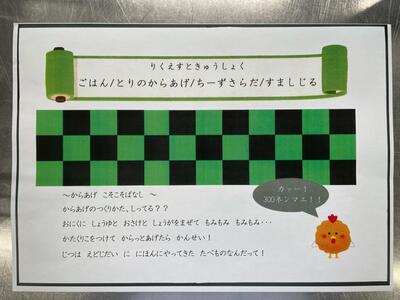 りくえすときゅうしょく
ごはん/とりのからあげ/ちーずさらだ/すましじる
カァー!
300ネンマエ!!
〜からあげ こそこそばなし 〜
からあげのつくりかた、しってる??
おにくに しょうゆと おさけと しょうがをまぜて もみもみ もみもみ・・・
かたくりこをつけて からっとあげたら かんせい!
じつは えどじだい に にほんにやってきた たべものなんだって!